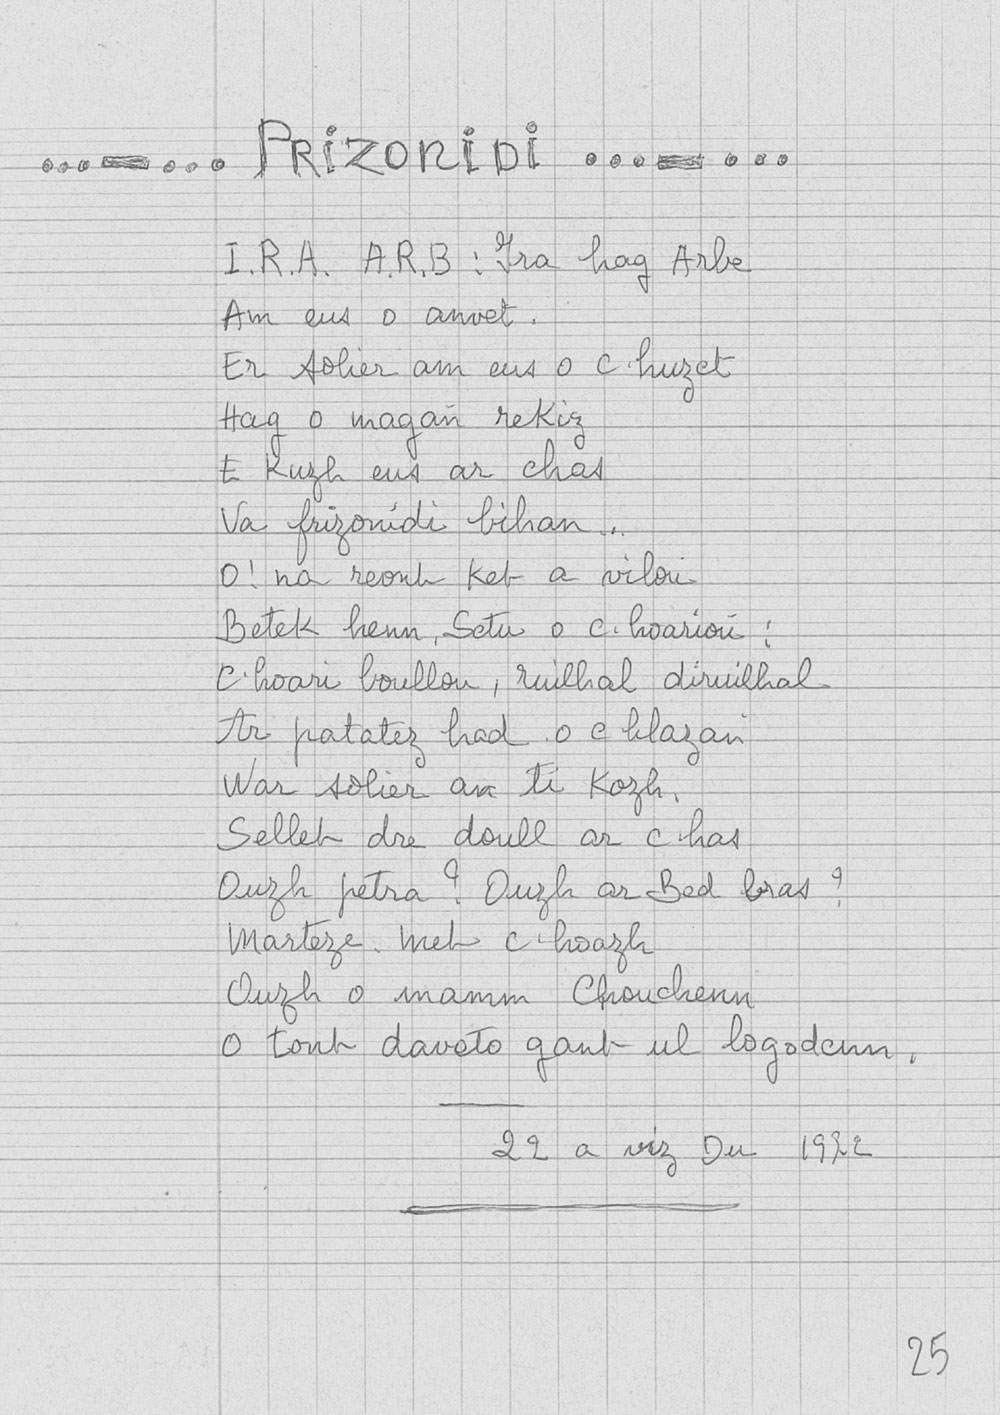 ...=... PRIZONIDI ...=...
I.R.A. A.R.B : Ira hag Arbe
Am eus o anvet.
Er solier am eus o c'huzet
Hag o magañ rekiz
E Kuzh eus ar chas
Va frizonidi bihan...
O! na reont ket a vilou
Betek henn, Setu o c'hoarioù :
C'hoari boullou, ruilhal diruilhal
Ar patatez had o c'hlazañ
War solier an ti Kozh.
Sellet dre doull ar c'has
Ouzh petra ? Ouzh ar Bed bras ?
Marteze. Met c'hoazh
Ouzh o mamm Chouchenn
O tont daveto gant ul logodenn.
22 a viz Du
25